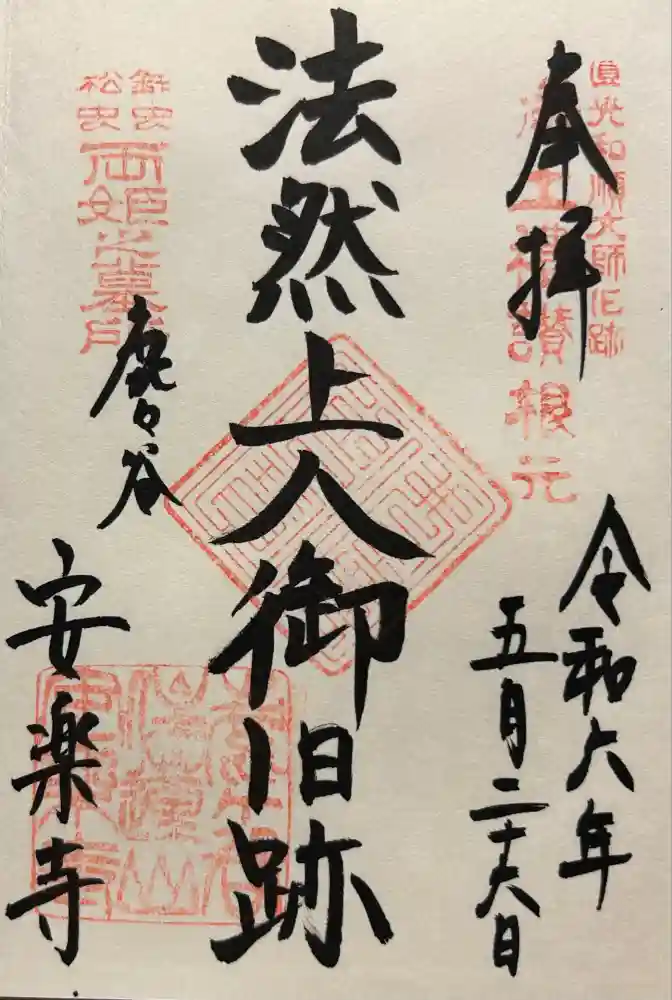 奉拝
圓光和順大師旧跡
浄土禮讃根元
令和六年
五月二十六日
法然上人御旧跡
鈴虫
松虫
両姫之墓所
鹿ヶ谷
安楽寺